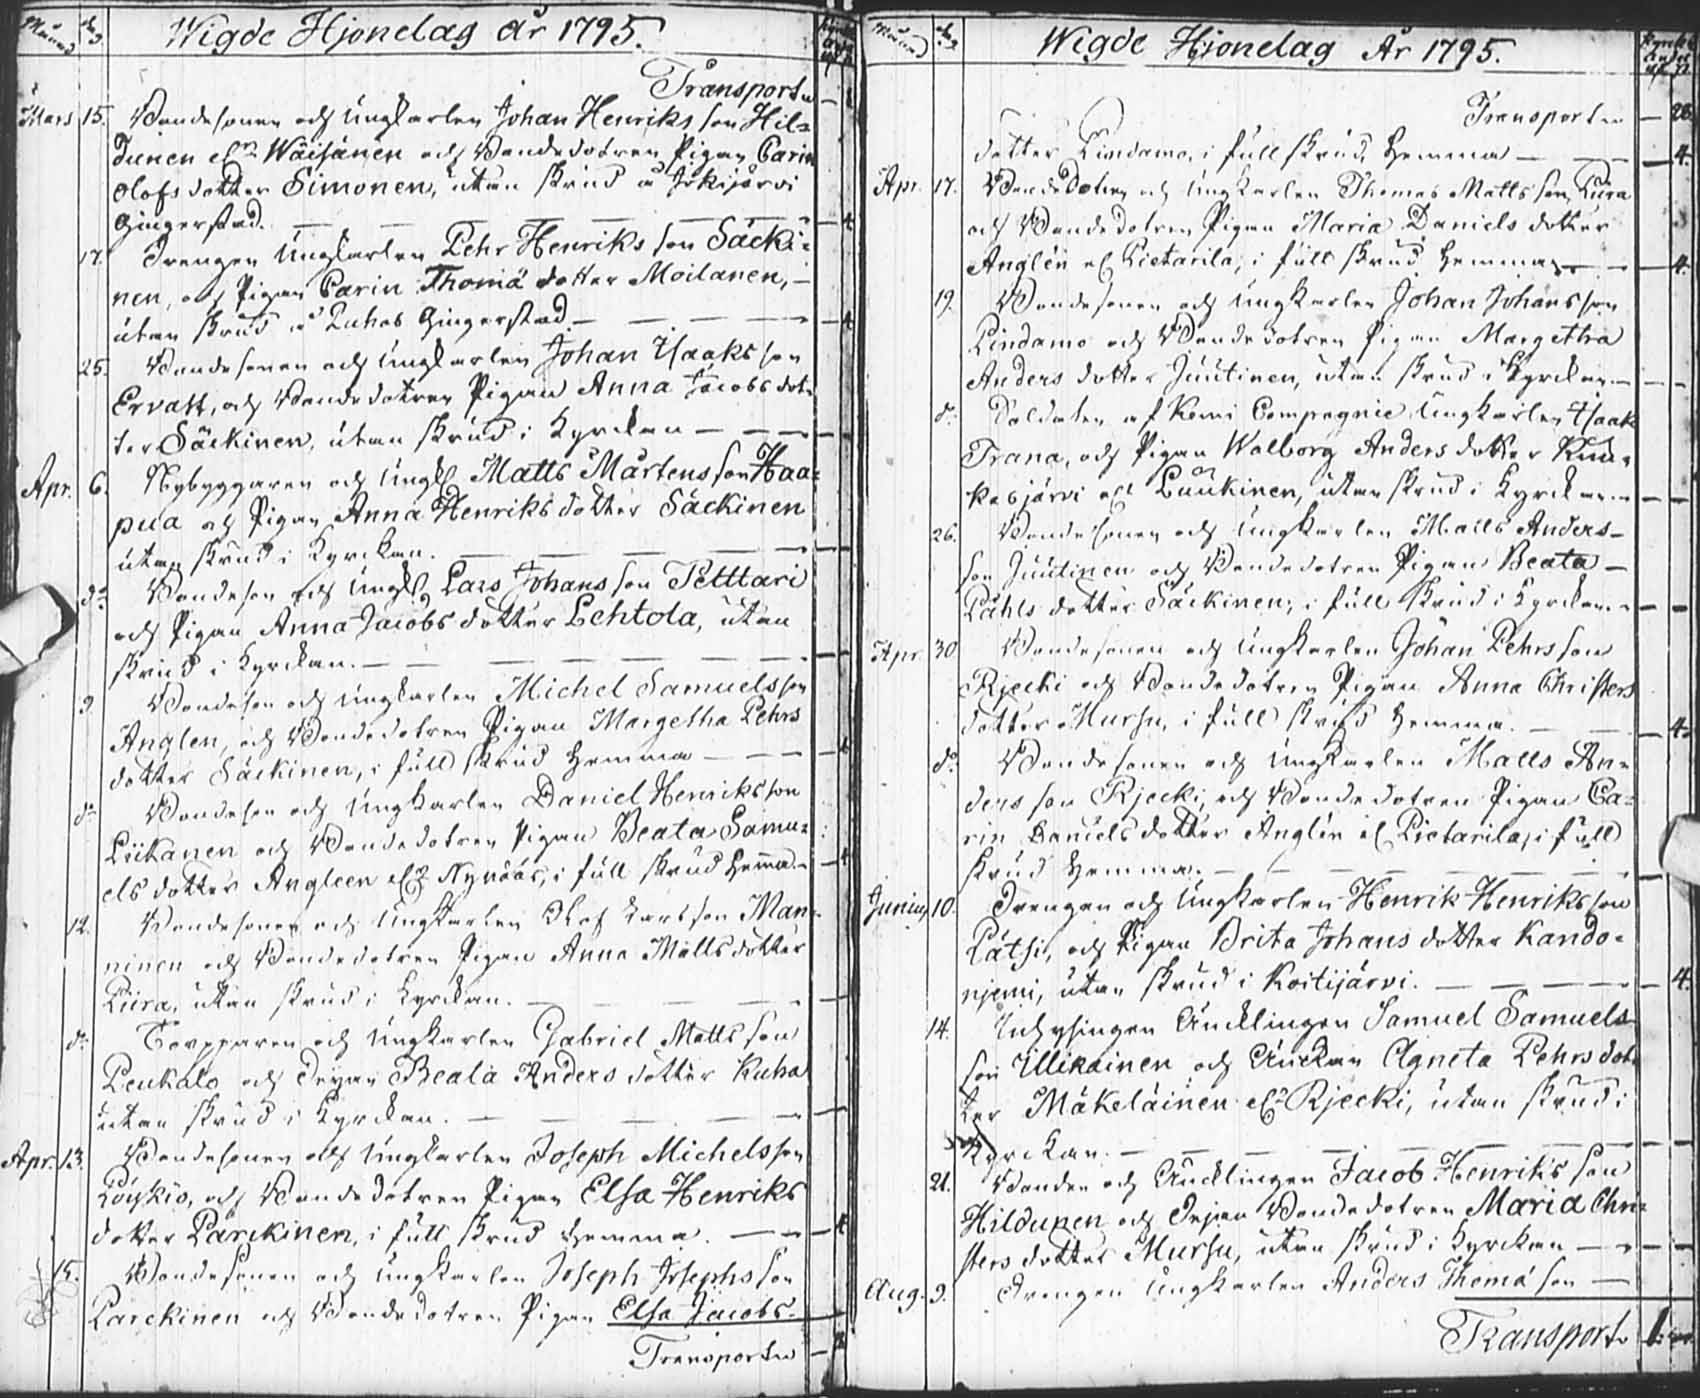 Månad
dag
Wigde Hjonelag år 1795.
Transport
Mars 15. Bondesonen och Ungkarlen Johan Henriks son Hil=
dunen elr Wäisänen och Bondedotren Pigan Carin
Olofs dotter Simonen, utan skrud å Jokijärvi
Gingerstad. — — — — 4
17. Drengen Ungkarlen Pehr Henriks son Säcki=
nen, och Pigan Carin Thomä dotter Moilanen, —
utan skrud å Puhos Gingerstad. — — — 4
25. Bondesonen och Ungkarlen Johan Isaaks son
Ervast, och Bondedotren Pigan Anna Jacobs dot=
ter Säckinen, utan skrud i Kyrckan — — —
Apr. 6. Nybyggaren och Ungk Matts Mårtens son Haa=
pua och Pigan Anna Henriks dotter Säckinen
utan skrud i Kyrckan. — — — —
do Bondeson och Ungk Lars Johans son Petttari
och Pigan Anna Jacobs dotter Lehtola, utan
skrud i Kyrckan. — — — — —
9. Bondeson och Ungkarlen Michel Samuelsson
Anglen, och Bondedotren Pigan Margetha Pehrs
dotter Säckinen, i full skrud hemma — — — 4
do Bondeson och Ungkarlen Daniel Henriksson
Liikanen och Bondedotren Pigan Beata Samu=
els dotter Angleen elr Nynäs, i full skrud hemma. — 4
12. Bondesonen och Ungkarlen Olof Larsson Man=
ninen och Bondedotren Pigan Anna Matts dotter
Piira, utan skrud i Kyrckan. — — — —
do Torpparen och Ungkarlen Gabriel Matts son
Peukalo och Pigan Beata Anders dotter Kuha
utan skrud i Kyrckan. — — — —
Apr. 13. Bondesonen och Ungkarlen Joseph Michelsson
Löyskiö, och Bondedotren Pigan Elsa Henriks
dotter Pärckinen, i full skrud hemma. — — 4
15. Bondesonen och Ungkarlen Joseph Josephs son
Parckinen och Bondedotren Pigan Elsa Jacobs-
Transport —
Månad
dag
Wigde Hjonelag År 1795.
Transport — 28
dotter Lindamo, i full skrud, hemma — — — 4.
Apr. 17. Bondedotren och Ungkarlen Thomas Matts son Piira
och Bondedotren Pigan Maria Daniels dotter
Anglén el Pietarila, i full skrud hemma — — 4.
19. Bondesonen och Ungkarlen Johan Johansson
Lindamo och Bondedotren Pigan Margetha
Anders dotter Juutinen, utan skrud i Kyrckan. — —
do Soldaten af Kemi Compagnie Ungkarlen Isaak
Trana, och Pigan Walborg Anders dotter Kuu=
kasjärvi ell Luukinen, utan skrud i Kyrckan. — —
26. Bondesonen och Ungkarlen Matts Anders-
son Juutinen och Bondedotren Pigan Beata —
Påhls dotter Säckinen, i full skrud i Kyrckan. — —
Apr. 30 Bondesonen och Ungkarlen Johan Pehrs son
Rjecki och Bondedotren Pigan Anna Christers
dotter Mursu, i full skrud hemma. — — 4.
do Bondesonen och Ungkarlen Matts An=
ders son Rjecki, och Bondedotren Pigan Ca=
rin Daniels dotter Anglén el Pietarila, i full
skrud hemma. — — — — —
Junius 10. Drengen och Ungkarlen Henrik Henriksson
Pätsi, och Pigan Brita Johans dotter Kando=
njemi, utan skrud i Koitijärvi. — — — 4.
14. Inhysingen Änklingen Samuel Samuels
son Ullikainen och Änkan Agneta Pehrs dot=
ter Mäkeläinen elr Rjecki, utan skrud i
Kyrckan. — — — — —
21. Bonden och Äncklingen Jacob Henriks son
Hildunen och Pigan Bondedotren Maria Chri=
sters dotter Mursu, utan skrud i Kyrckan — — —
Aug. 9. Drengen Ungkarlen Anders Thomä son —
Transport 1: